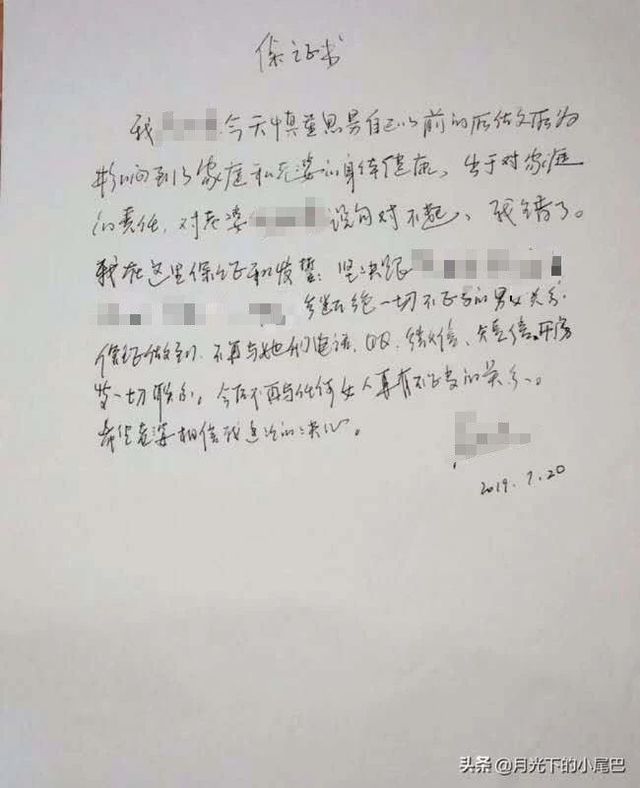 保证书
我 今天慎重思虑自己以前的所做所为
影响到了家庭和老婆的身体健康，出于对家庭
的责任，对老婆 说句对不起，我错了。
我在这里保证和发誓：坚决跟
断绝一切不正当的男女关系.
保证做到，不再与她们电话、QQ、微信、短信、开房
等一切联系，今后不再与任何女人再有不正当的关系。
希望老婆相信我这次的决心。
2019.7.20
头条 @月光下的小尾巴